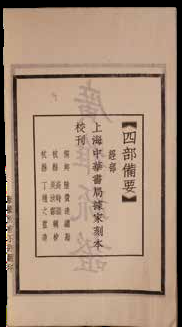 【四部備要】
經部
上海中華書局據家刻本
校刊
桐鄉 陸費逵 總勘
杭縣 高時顯 輯校
杭縣 吳汝霖 輯校
杭縣 丁輔之 監造
廣雅疏證